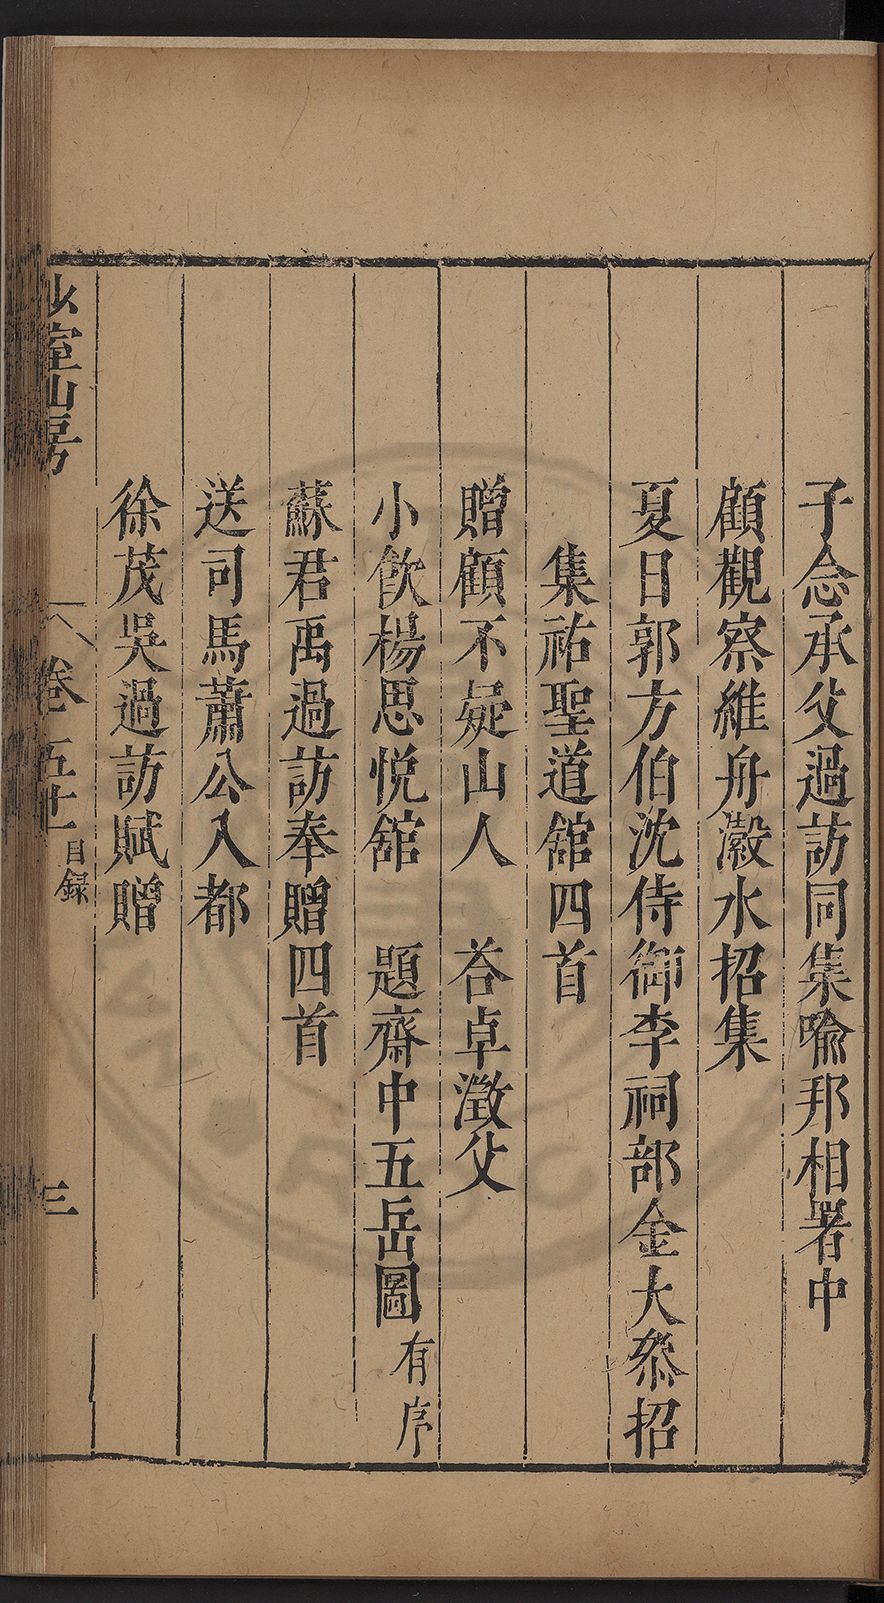 子念承父過訪同集喻邦相署中
顧觀察維舟瀫水招集
夏日郭方伯沈侍御李祠部金大叅招
集祐聖道舘四首
贈顧不疑山人　荅卓澂父
小飲楊思悅舘　題齋中五岳圖有序
蘇君禹過訪奉贈四首
送司馬蕭公入都
徐茂吳過訪賦贈
少室山房　卷五十　目録　三